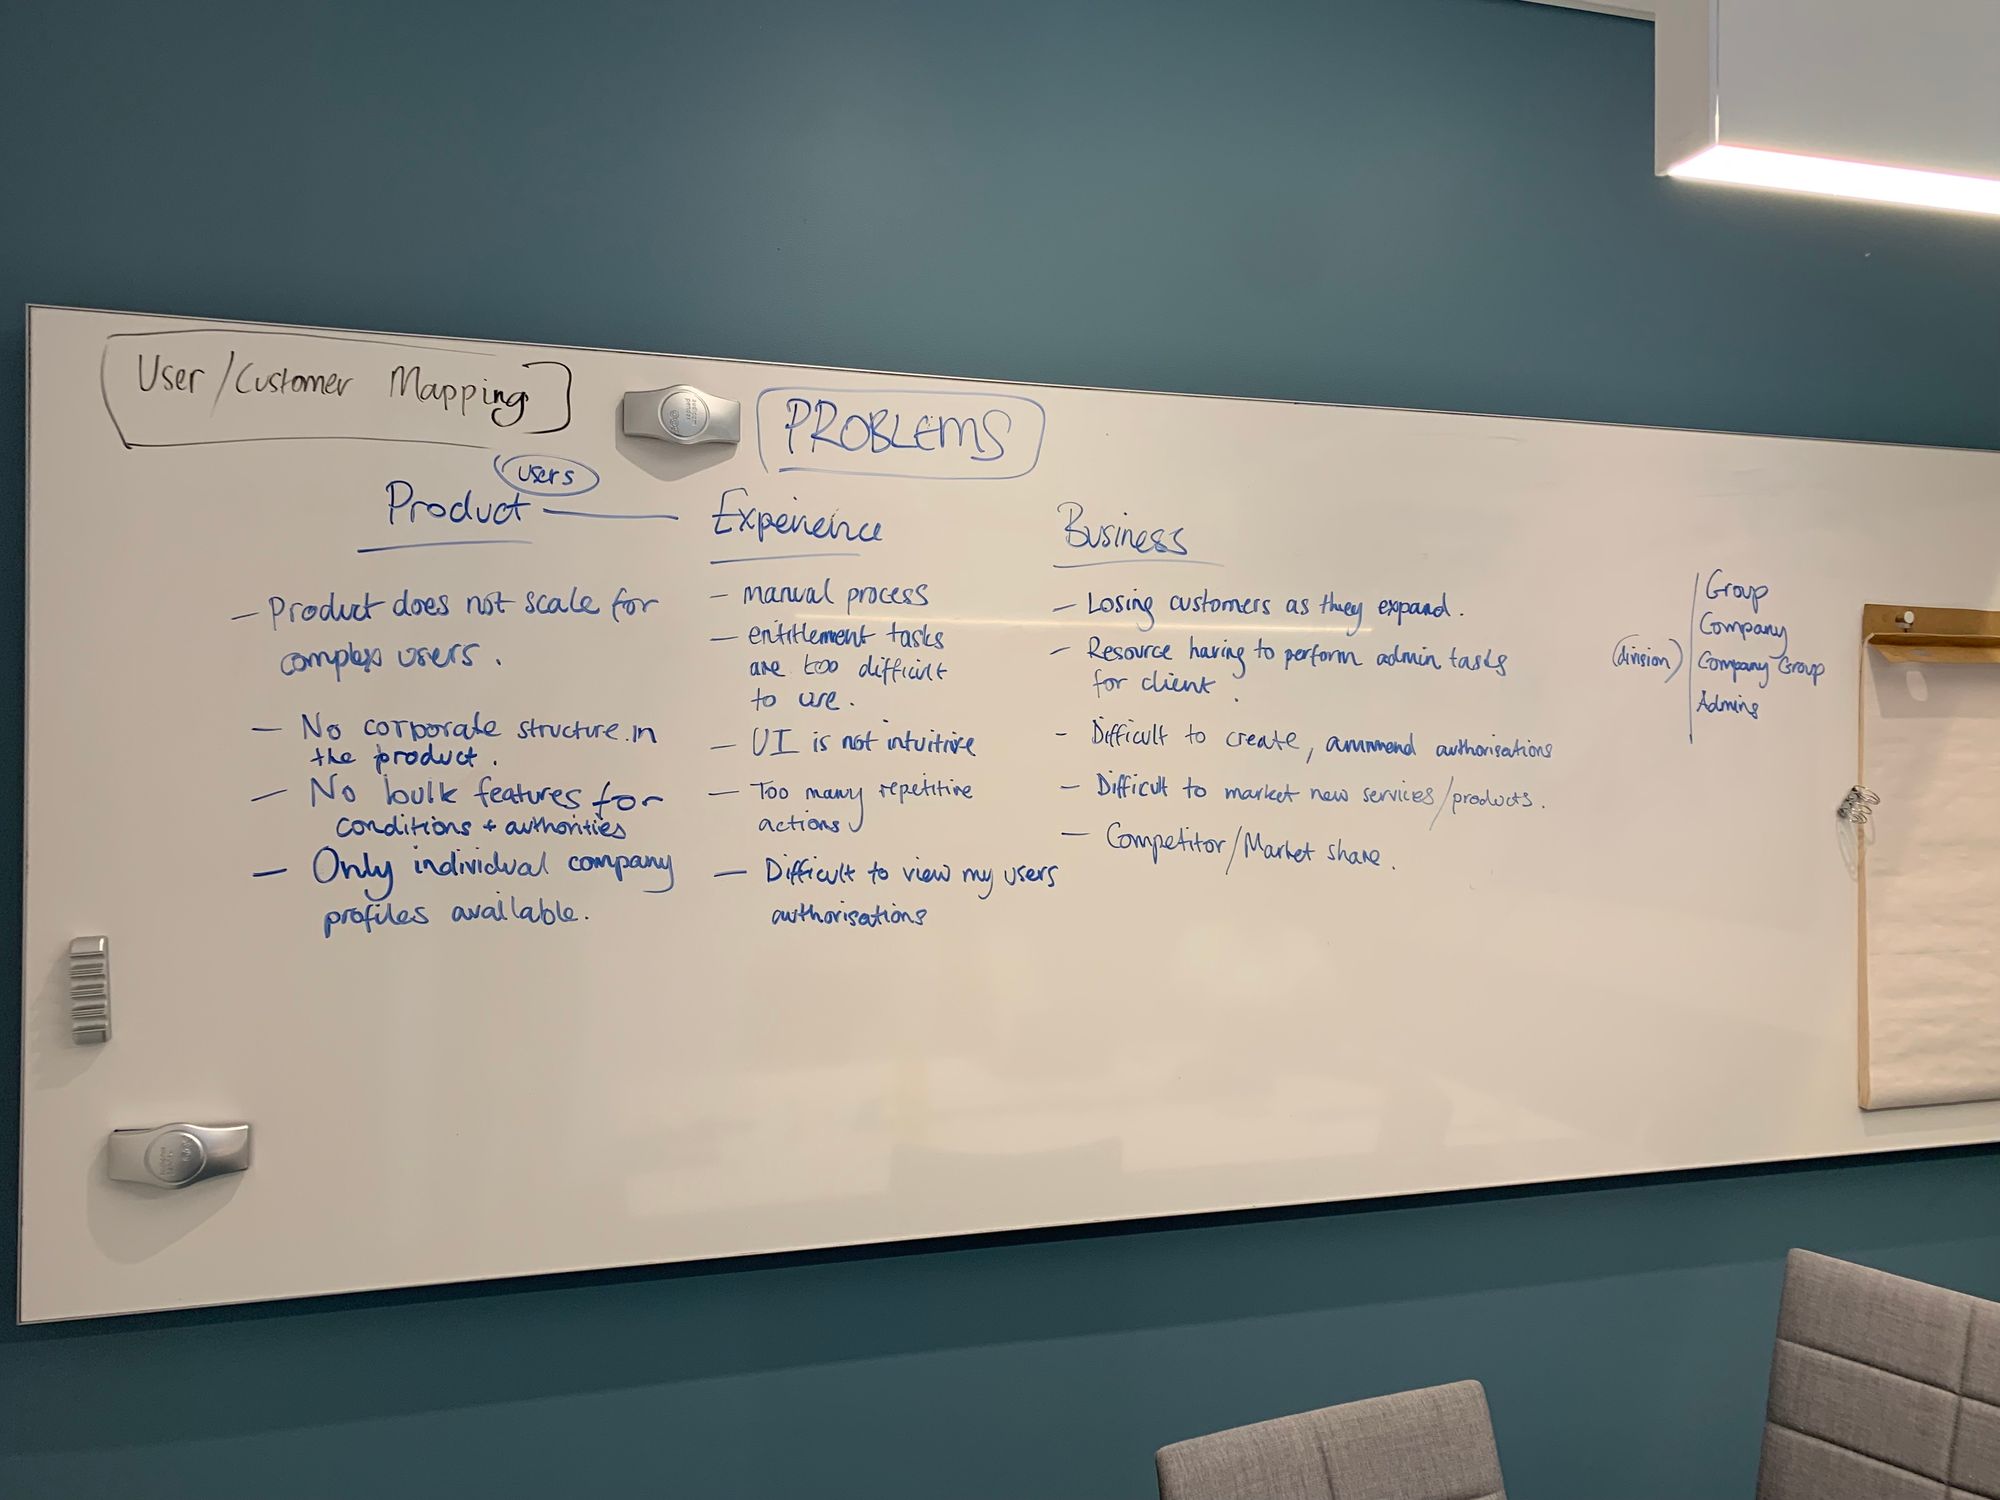 User/Customer Mapping
PROBLEMS
users
Product
- Product does not scale for
complex users.
- No corporate structure in
the product.
- No bulk features for
conditions + authorities
- Only individual company
profiles available.
Experience
- manual process
- entitlement tasks
are too difficult
to use.
- UI is not intuitive
- Too many repetitive
actions
- Difficult to view my users
authorisations
Business
- Losing customers as they expand.
- Resource having to perform admin tasks
for client.
- Difficult to create, ammend authorisations
- Difficult to market new services/products.
- Competitor/Market share.
(division)
Group
Company
Company Group
Admins